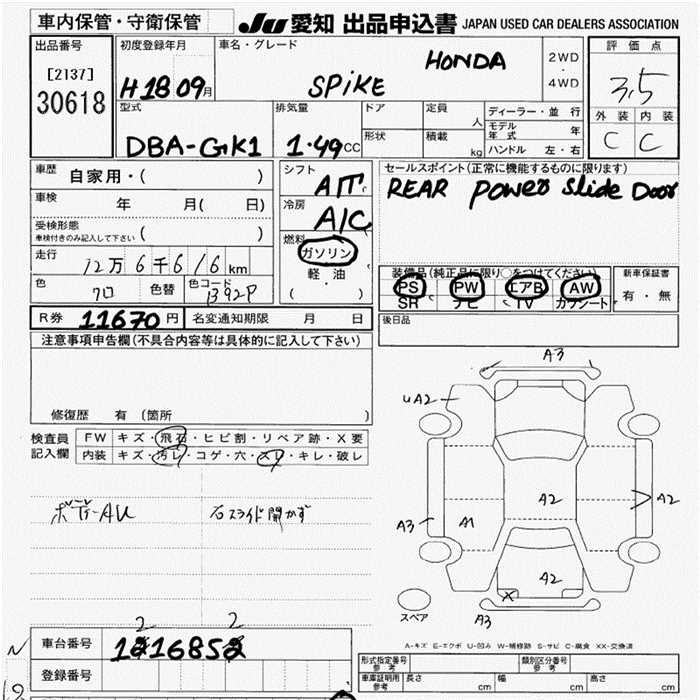 車内保管・守衛保管
JU 愛知 出品申込書 JAPAN USED CAR DEALERS ASSOCIATION
出品番号
[2137]
30618
初度登録年月
H18 09月
車名・グレード
HONDA
SPiKE
2WD
・
4WD
評価点
3.5
外装 内装
C C
型式
DBA-GK1
排気量
1.49CC
ドア
定員
人
形状
積載
kg
ディーラー・並行
モデル年式 年
ハンドル 左・右
車歴
自家用・( )
車検
年 月( 日)
受検形態
車検付きのみ記入して下さい ( )
走行
12万6千616km
色
クロ
色替
色コード
B92P
シフト
AT
冷房
A/C
燃料
ガソリン
・
軽・油
( )
セールスポイント(正常に機能するものに限ります)
REAR Power Slide Door
装備品(純正品に限り○をつけてください)
PS PW エアB AW
SR ナビ TV カワシート
新車保証書
有・無
R券 11670円 名変通知期限 月 日
後日品
注意事項申告欄(不具合内容等は具体的に記入して下さい)
修復歴 有(箇所 )
検査員
記入欄
FW キズ・飛石・ヒビ割・リペア跡・X要
内装 キズ・汚レ・コゲ・穴・スレ・キレ・破レ
ボデーAU
右スライド開かず
A3
UA2
A2
A2
A3
A1
A2
X
A3
スペア
A-キズ E-エクボ U-凹み W-補修跡 S-サビ C-腐食 XX-交換済
車台番号
1216852
2 2
登録番号
形式指定番号
参考
類別区分番号
参考
車庫証明用
参考
長さ cm
幅 cm
高さ cm